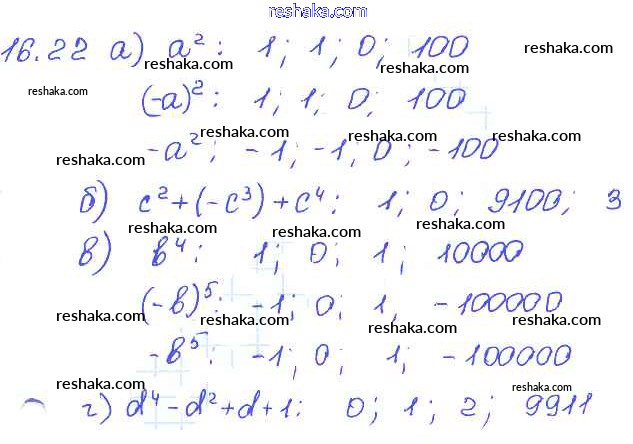 reshaka.com
16.22 а) a²: 1; 1; 0; 100
reshaka.com reshaka.com reshaka.com
(-a)²: 1; 1; 0; 100
reshaka.com reshaka.com reshaka.com
-a²; -1; -1; 0; -100
б) c²+(-c³)+c⁴: 1; 0; 9100; 3
reshaka.com reshaka.com reshaka.com
в) b⁴: 1; 0; 1; 10000
(-b)⁵: -1; 0; 1, -100000
reshaka.com reshaka.com reshaka.com
-b⁵: -1; 0; 1; -100000
reshaka.com reshaka.com reshaka.com
г) d⁴-d²+d+1: 0; 1; 2; 9911
reshaka.com reshaka.com